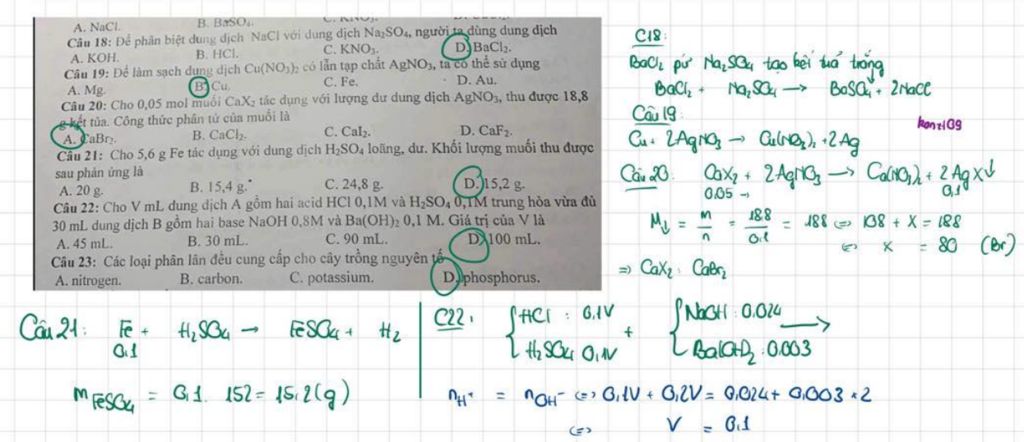 A. NaCl. B. BaSO₄. C. KNO₃.
Câu 18: Để phân biệt dung dịch NaCl với dung dịch Na₂SO₄, người ta dùng dung dịch
A. KOH. B. HCl. C. KNO₃. D. BaCl₂.
Câu 19: Để làm sạch dung dịch Cu(NO₃)₂ có lẫn tạp chất AgNO₃, ta có thể sử dụng
A. Mg. B. Cu. C. Fe. D. Au.
Câu 20: Cho 0,05 mol muối CaX₂ tác dụng với lượng dư dung dịch AgNO₃, thu được 18,8
g kết tủa. Công thức phân tử của muối là
A. CaBr₂. B. CaCl₂. C. CaI₂. D. CaF₂.
Câu 21: Cho 5,6 g Fe tác dụng với dung dịch H₂SO₄ loãng, dư. Khối lượng muối thu được
sau phản ứng là
A. 20 g. B. 15,4 g. C. 24,8 g. D. 15,2 g.
Câu 22: Cho V mL dung dịch A gồm hai acid HCl 0,1M và H₂SO₄ 0,1M trung hòa vừa đủ
30 mL dung dịch B gồm hai base NaOH 0,8M và Ba(OH)₂ 0,1 M. Giá trị của V là
A. 45 mL. B. 30 mL. C. 90 mL. D. 100 mL.
Câu 23: Các loại phân lân đều cung cấp cho cây trồng nguyên tố
A. nitrogen. B. carbon. C. potassium. D. phosphorus.
C18:
BaCl₂ pứ Na₂SO₄ tạo kết tuả trắng
BaCl₂ + Na₂SO₄ → BaSO₄↓ + 2NaCl
Câu 19:
Cu + 2AgNO₃ → Cu(NO₃)₂ + 2Ag
Câu 20: CaX₂ + 2AgNO₃ → Ca(NO₃)₂ + 2AgX↓
0.05 → 0.1
M↓ = m/n = 18.8/0.1 = 188 ⇔ 108 + X = 188
⇔ X = 80 (Br)
⇒ CaX₂: CaBr₂
Câu 21: Fe + H₂SO₄ → FeSO₄ + H₂
0.1
mFeSO₄ = 0,1. 152 = 15,2 (g)
C22: { HCl : 0,1V + { NaOH : 0.024 →
H₂SO₄ 0,1V Ba(OH)₂ : 0.003
nH⁺ = nOH⁻ ⇔ 0,1V + 0,2V = 0,024 + 0,003 * 2
⇔ V = 0.1